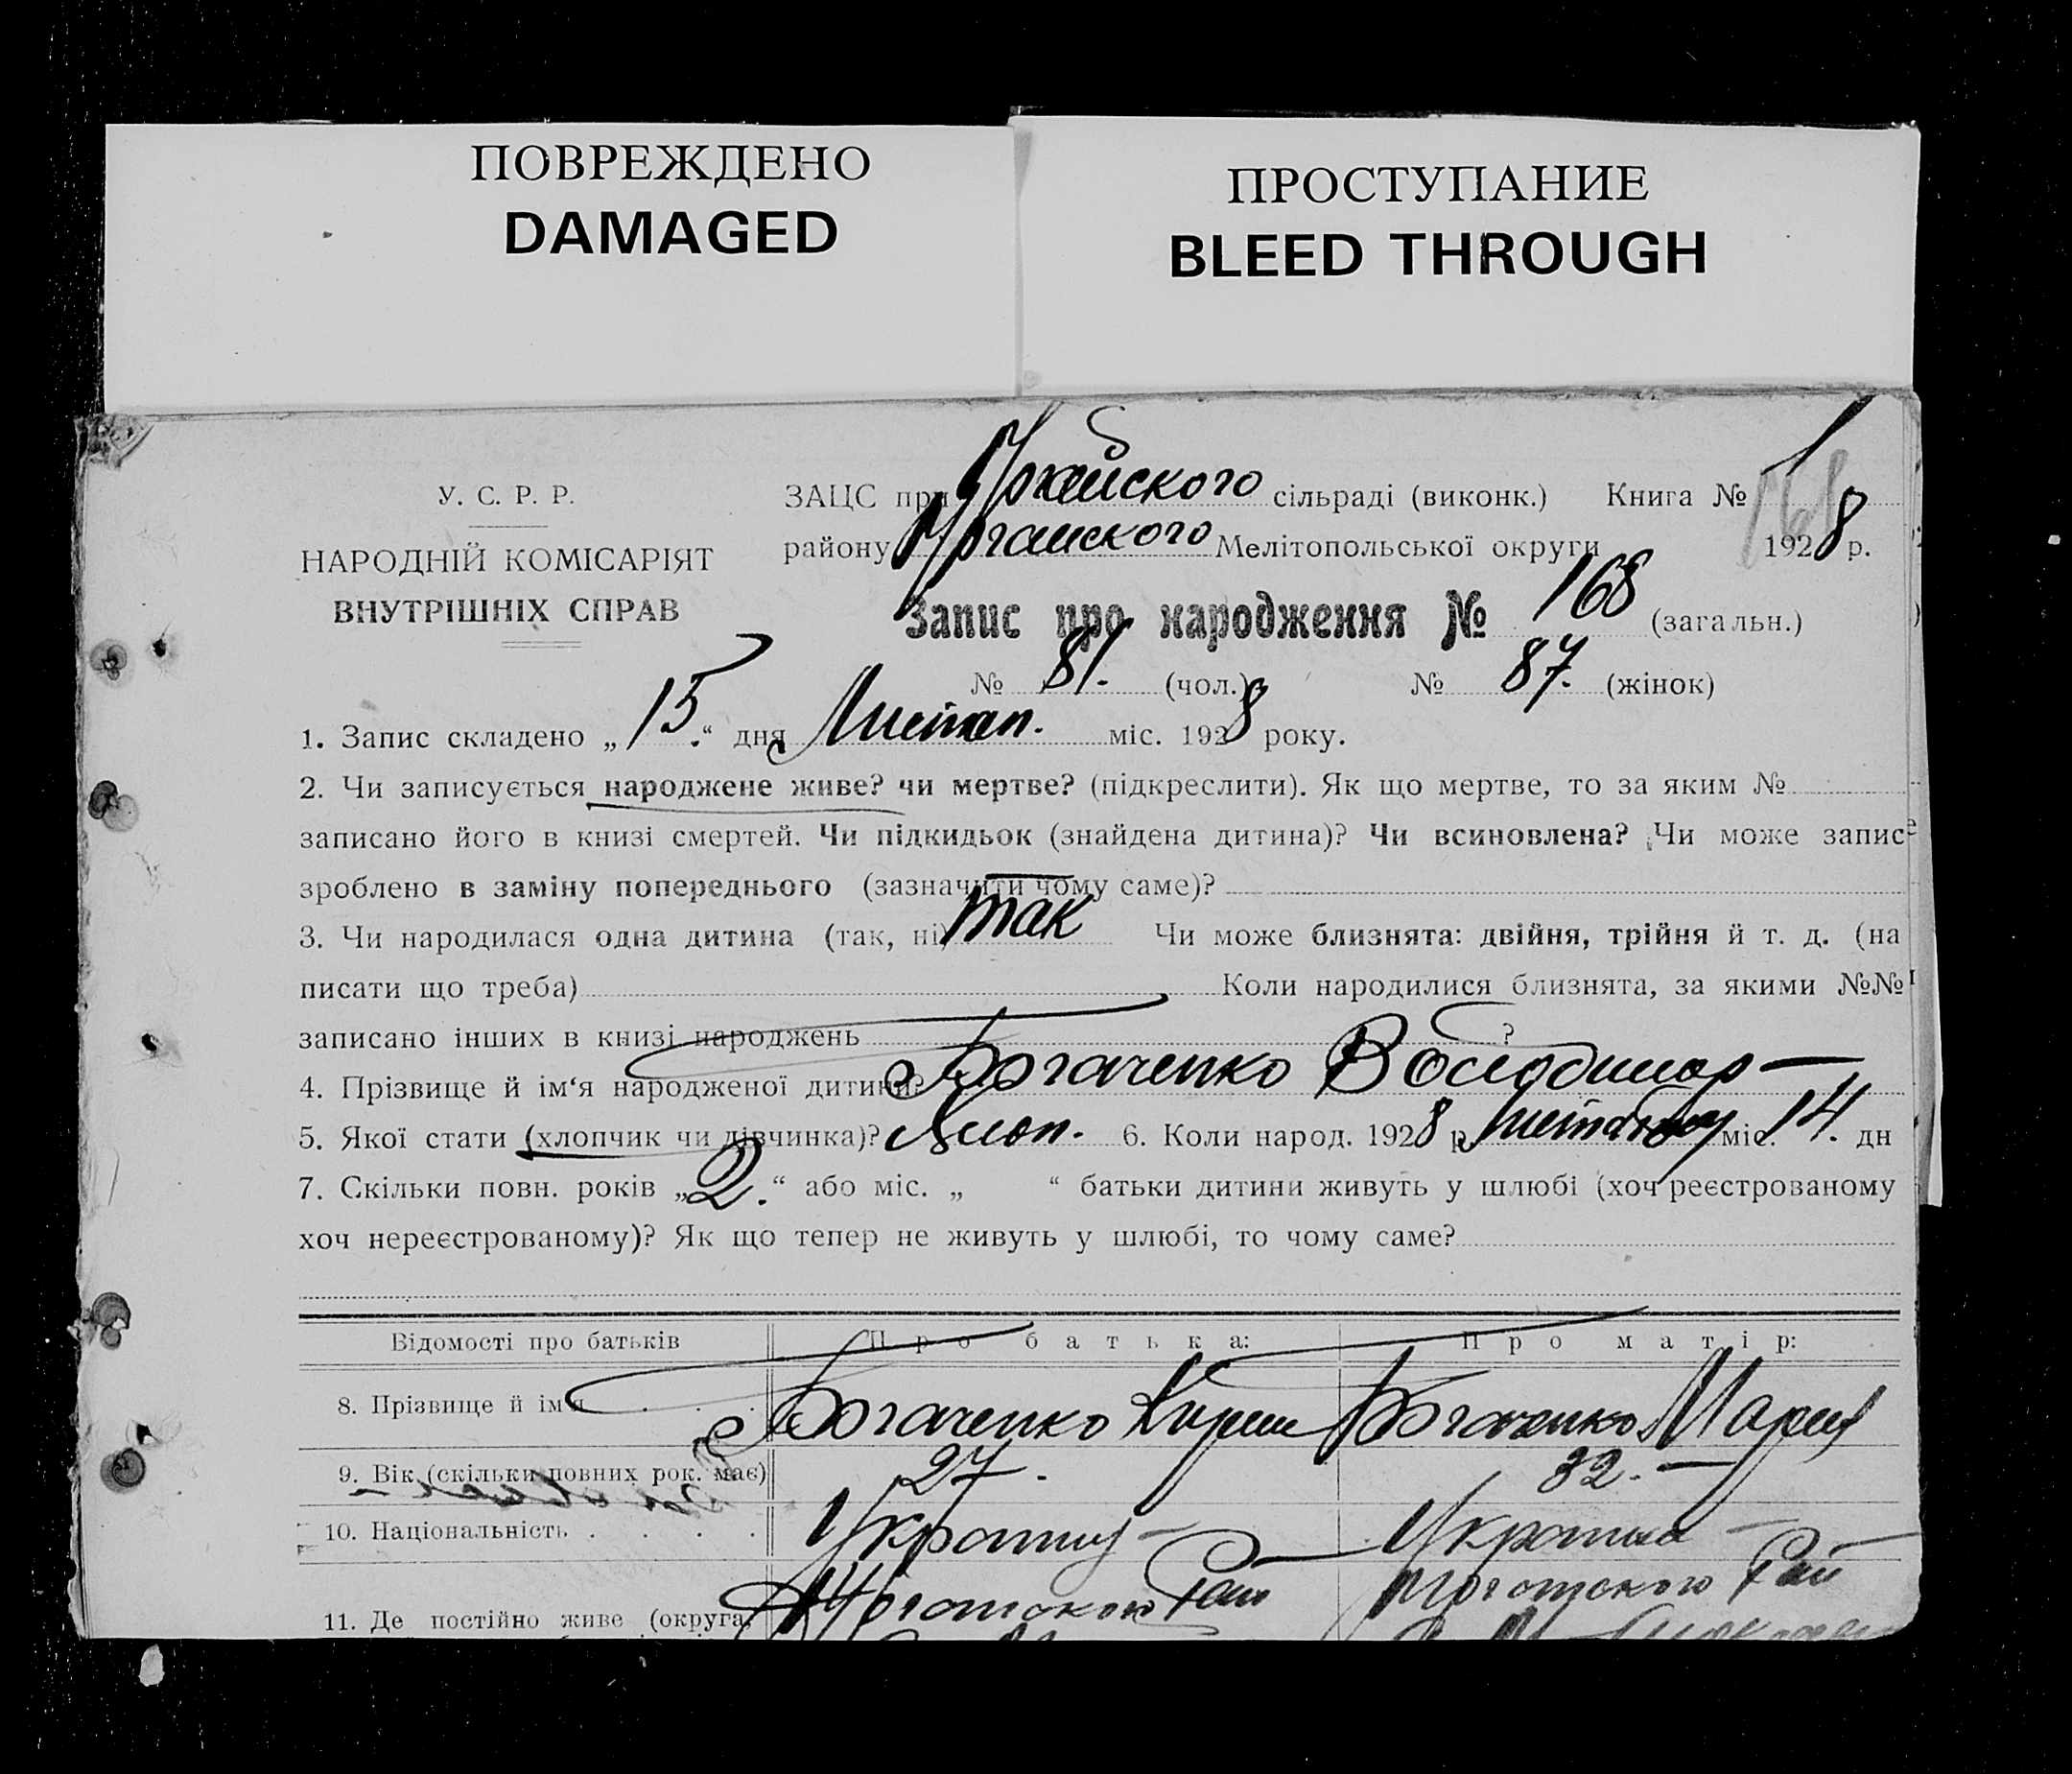 ПОВРЕЖДЕНО
DAMAGED
ПРОСТУПАНИЕ
BLEED THROUGH
У. С. Р. Р.
НАРОДНІЙ КОМІСАРІЯТ
ВНУТРІШНІХ СПРАВ
ЗАЦС при сільраді (виконк.) Книга №
району Мелітопольської округи 1928 р.
Запис про народження № 168 (загальн.)
№ 81. (чол.) № 87. (жінок)
1. Запис складено „15.“ дня Листоп. міс. 1928 року.
2. Чи записується народжене живе? чи мертве? (підкреслити). Як що мертве, то за яким №
записано його в книзі смертей. Чи підкидьок (знайдена дитина)? Чи всиновлена? Чи може запис
зроблено в заміну попереднього (зазначити чому саме)?
3. Чи народилася одна дитина (так, ні) так Чи може близнята: двійня, трійня й т. д. (на
писати що треба) Коли народилися близнята, за якими №№
записано інших в книзі народжень ?
4. Прізвище й ім‘я народженої дитини? Богаченко Володимир
5. Якої стати (хлопчик чи дівчинка)? Хлоп. 6. Коли народ. 1928 р. листопаду міс. 14. дн
7. Скільки повн. років „2.“ або міс. „ “ батьки дитини живуть у шлюбі (хоч реєстрованому
хоч нереєстрованому)? Як що тепер не живуть у шлюбі, то чому саме?
Відомості про батьків Про батька: Про матір:
8. Прізвище й ім‘я Богаченко Кирил Богаченко Мария
9. Вік (скільки повних рок. має) 27. 32.
10. Національність . . . .
11. Де постійно живе (округа, Рай Рай